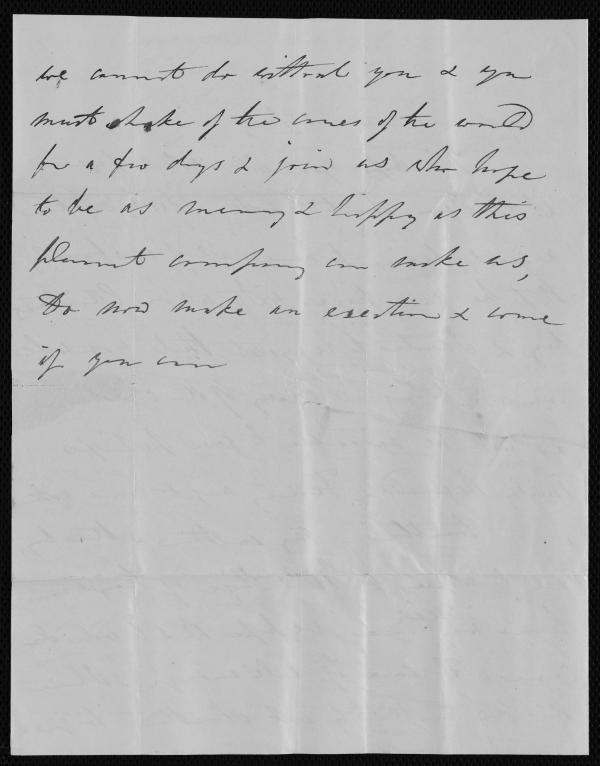 we cannot do without you & you
must shake of the cares of the world
for a few days & join us who hope
to be as merry & happy as this
pleasant company can make us,
Do now make an exertion & come
if you can